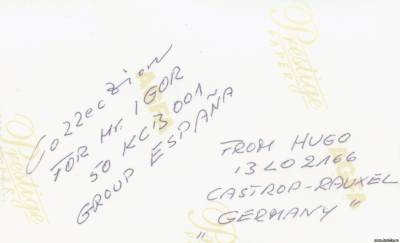 Collection
FOR Mr. IGOR
50 KCB 001
GROUP ESPAÑA
FROM HUGO
13 LO 2166
CASTROP-RAUXEL
" GERMANY "
Prestige
AGFA
AGFA
Prestige
Prestige